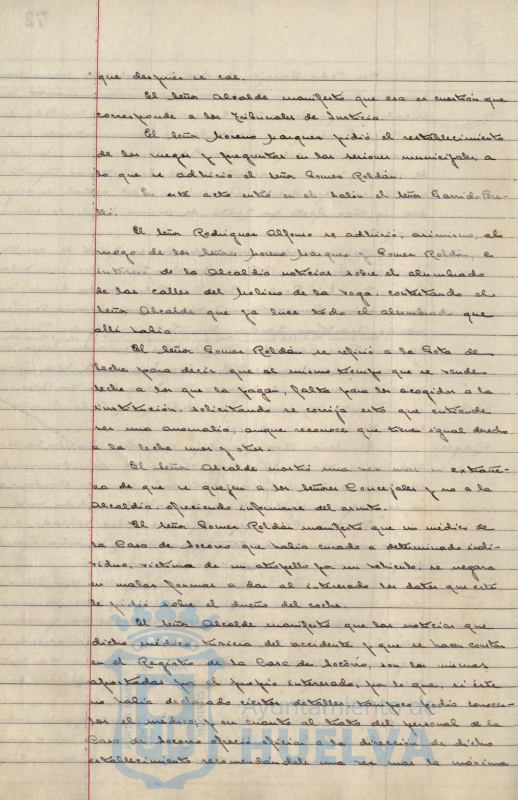 que después se cae.
El Señor Alcalde manifestó que esa es cuestión que
corresponde a los Tribunales de Justicia.
El Señor Moreno Marquez pidió el restablecimiento
de los ruegos y preguntas en las sesiones municipales, a
lo que se adhirió el Señor Gomez Roldán.
En este acto entró en el Salón el Señor Garrido Pre-
lló.
El Señor Rodriguez Alfonso se adhirió, asimismo, al
ruego de los Señores Moreno Marquez y Gomez Roldán, e
interesó de la Alcaldía noticias sobre el alumbrado
de las calles del Molino de la Vega, contestando el
Señor Alcalde que ya luce todo el alumbrado que
allí había.
El Señor Gomez Roldán se refirió a la Gota de
leche para decir que al mismo tiempo que se vende
leche a los que la pagan, falta para los acogidos a la
institución, solicitando se corrija esto que entiende
ser una anomalía, aunque reconoce que tienen igual derecho
a la leche unos y otros.
El Señor Alcalde mostró una vez mas su extrañe-
za de que se quejen a los Señores Concejales y no a la
Alcaldía, ofreciendo informarse del asunto.
El Señor Gomez Roldán manifestó que un médico de
la Casa de Socorro que había curado a determinado indi-
viduo, víctima de un atropello por un vehículo, se negara
en malas formas a dar al interesado los datos que este
le pidió sobre el dueño del coche.
El Señor Alcalde manifestó que las noticias que
dicho médico tuviera del accidente y que se hacen constar
en el Registro de la Casa de Socorro, son las mismas
aportadas por el propio interesado, por lo que, si éste
no había declarado ciertos detalles, tampoco podía conocer-
los el médico; y en cuanto al trato del personal de la
Casa de Socorro ofreció oficiar a la dirección de dicho
establecimiento recomendándole una vez mas la máxima
72
Ayuntamiento de
HUELVA